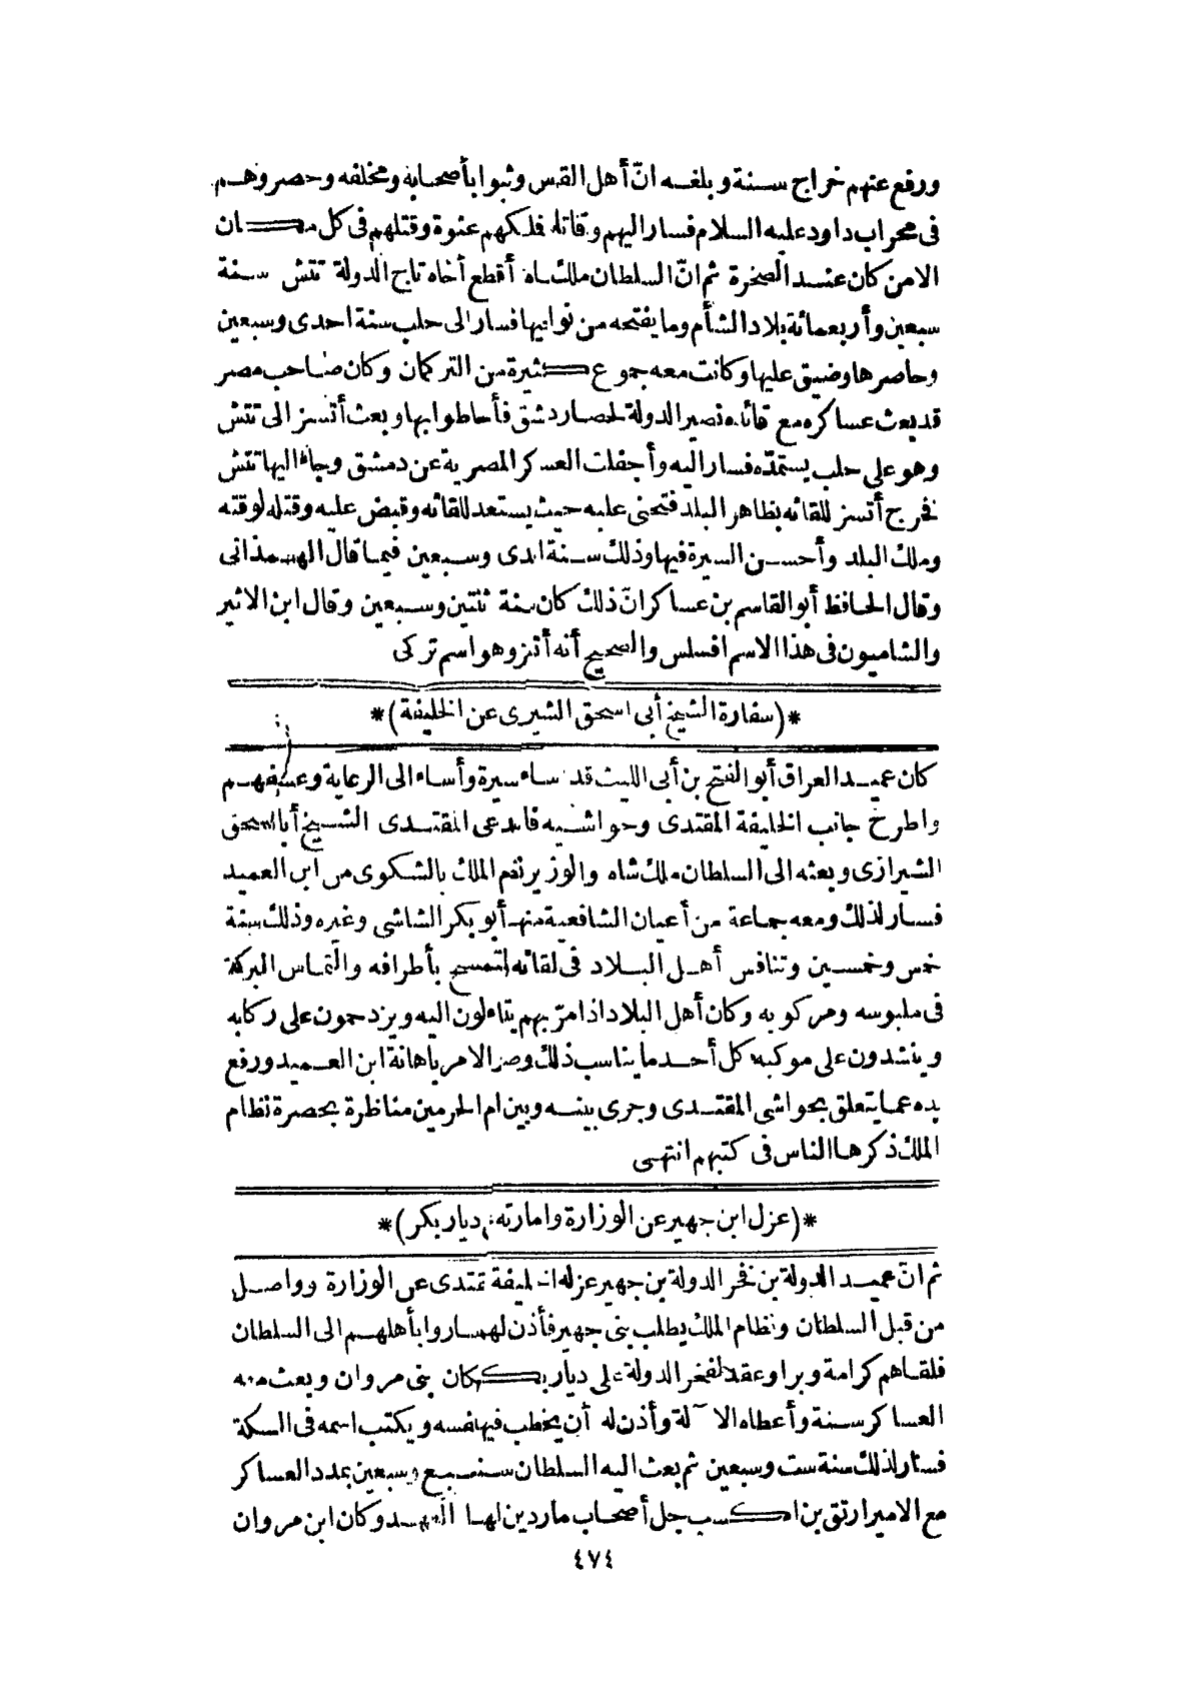 ورفع عنهم خراج سنة وبلغه انّ أهل القدس وثبوا بأصحابه ومخلفه وحصروهم
فى محراب داود عليه السلام فسار اليهم وقاتلهم فلكهم عنوة وقتلهم فى كل مكان
الامن كان عند الصخرة ثم انّ السلطان ملك شاه أقطع أخاه تاج الدولة تتش سنة
سبعين وأربعمائة بلاد الشأم وما يفتحه من نواحيها فسار الى حلب سنة احدى وسبعين
وحاصرها وضيق عليها وكانت معه جموع كثيرة من التركمان وكان صاحب مصر
قد بعث عساكره مع قائده نصير الدولة لحصار دمشق فأحاطوا بها وبعث أتسز الى تتش
وهو على حلب يستمدّه فسار اليه وأجفلت العسكر المصرية عن دمشق وجاء اليها تتش
فخرج أتسز للقائه بظاهر البلد فتجنى عليه حيث يستعد للقائه وقبض عليه وقتله لوقته
وملك البلد وأحسن السيرة فيها وذلك سنة احدى وسبعين فيما قال الهمذانى
وقال الحافظ أبو القاسم بن عساكر انّ ذلك كان سنة ثنتين وسبعين وقال ابن الاثير
والشاميون فى هذا الاسم افسلس والصحيح أنه أتسز وهو اسم تركى
*(سفارة الشيخ أبى اسحق الشيرى عن الخليفة)*
كان عميد العراق أبو الفتح بن أبى الليث قد ساء سيرة وأساء الى الرعاية وعسفهم
واطرح جانب الخليفة المقتدى وحواشيه فاستدعى المقتدى الشيخ أبا اسحق
الشيرازى وبعثه الى السلطان ملك شاه والوزير نظام الملك بالشكوى من ابن العميد
فسار لذلك ومعه جماعة من أعيان الشافعية منهم أبو بكر الشاشى وغيره وذلك سنة
خمس وخمسين وتنافس أهل البلاد فى لقائه لتمسح بأطرافه والتماس البركة
فى ملبوسه ومركوبه وكان أهل البلاد اذا مرّ بهم يتاءلون اليه ويزدحمون على ركابه
وينشدون على موكبه كل أحد ما يناسب ذلك وصدر الامر باهانة ابن العميد ورفع
يده عما يتعلق بحواشى المقتدى وجرى بينه وبين ام الحرمين مناظرة بحضرة نظام
الملك ذكرها الناس فى كتبهم انتهى
*(عزل ابن جهير عن الوزارة وامارته دياربكر)*
ثم انّ عميد الدولة بن فخر الدولة بن جهير عزله الخليفة مقتدى عن الوزارة وواصل
من قبل السلطان ونظام الملك يطلب بنى جهير فأذن لهم ساروا بأهلهم الى السلطان
فلقاهم كرامة وبرا وعقد لفخر الدولة على ديار بكر مكان بنى مروان وبعث معه
العساكر سنة وأعطاه الآلة وأذن له أن يخطب فيها نفسه ويكتب اسمه فى السكة
فسار لذلك سنة ست وسبعين ثم بعث اليه السلطان سنة سبع وسبعين بمدد العساكر
مع الامير ارتق بن اكسب جل أصحاب ماردين لهذا العهد وكان ابن مروان
٤٧٤